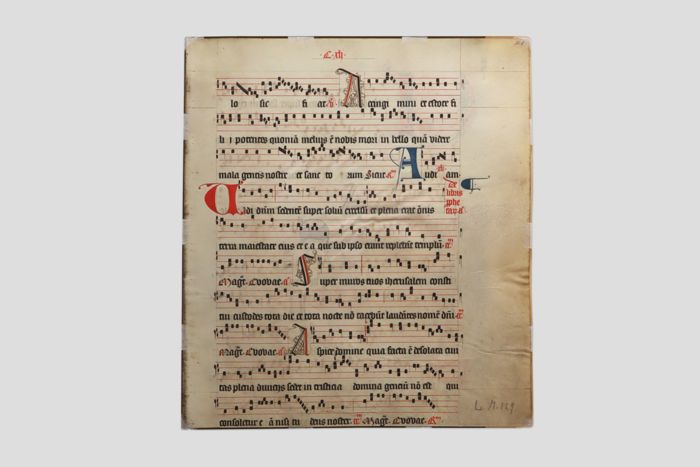 C. xli
lo sic fi at. Accingi mini et estote fi
lii potentes quoniā melius ē nobis mori in bello quā videre
mala gentis nostre et sanc to rum Sicut Audi am.
De libris
Vidi dn̄m sedentē super soliū excelsū et plena erat ōnis
terra maiestate eius et e a que sub ipso erant replebāt templū.
Magn̄t. Evovae. Super muros tuos iherusalem consti
tui custodes tota die et tota nocte nō tacebūt laudātes nomē dn̄i.
Magn̄t. Evovae. Aspice domine quia facta ē desolata civi
tas plena divitiis sedet in tristicia domina genciū nō est qui
consoletur e ā nisi tu deus noster. Magn̄t. Evovae.
L N. 129